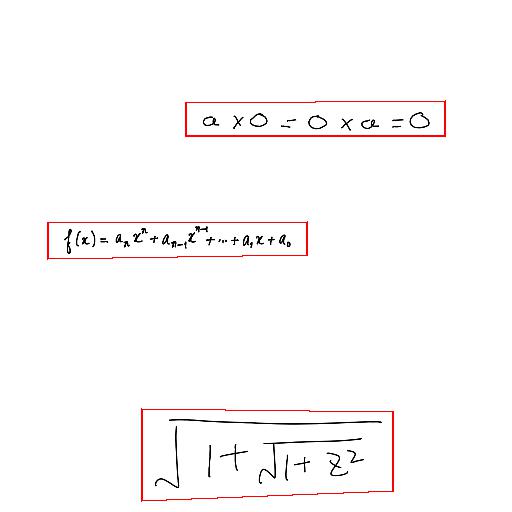 a × 0 = 0 × a = 0
f(x) = aₙxⁿ + aₙ₋₁xⁿ⁻¹ + ... + a₁x + a₀
√(1 + √(1 + z²))